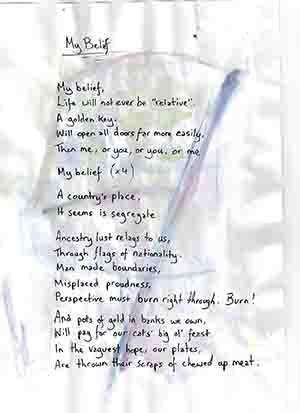 My Belief
My belief,
Life will not ever be "relative".
A golden key.
Will open all doors far more easily.
Then me, or you, or you, or me
My belief (x4)
A country's place,
It seems is segregate
Ancestry lust relays to us,
Through flags of nationality.
Man made boundaries,
Misplaced proudness,
Perspective must burn right through. Burn!
And pots of gold in banks we own,
Will pay for our cats' big ol' feast
In the vaguest hope, our plates,
Are thrown their scraps of chewed up meat.